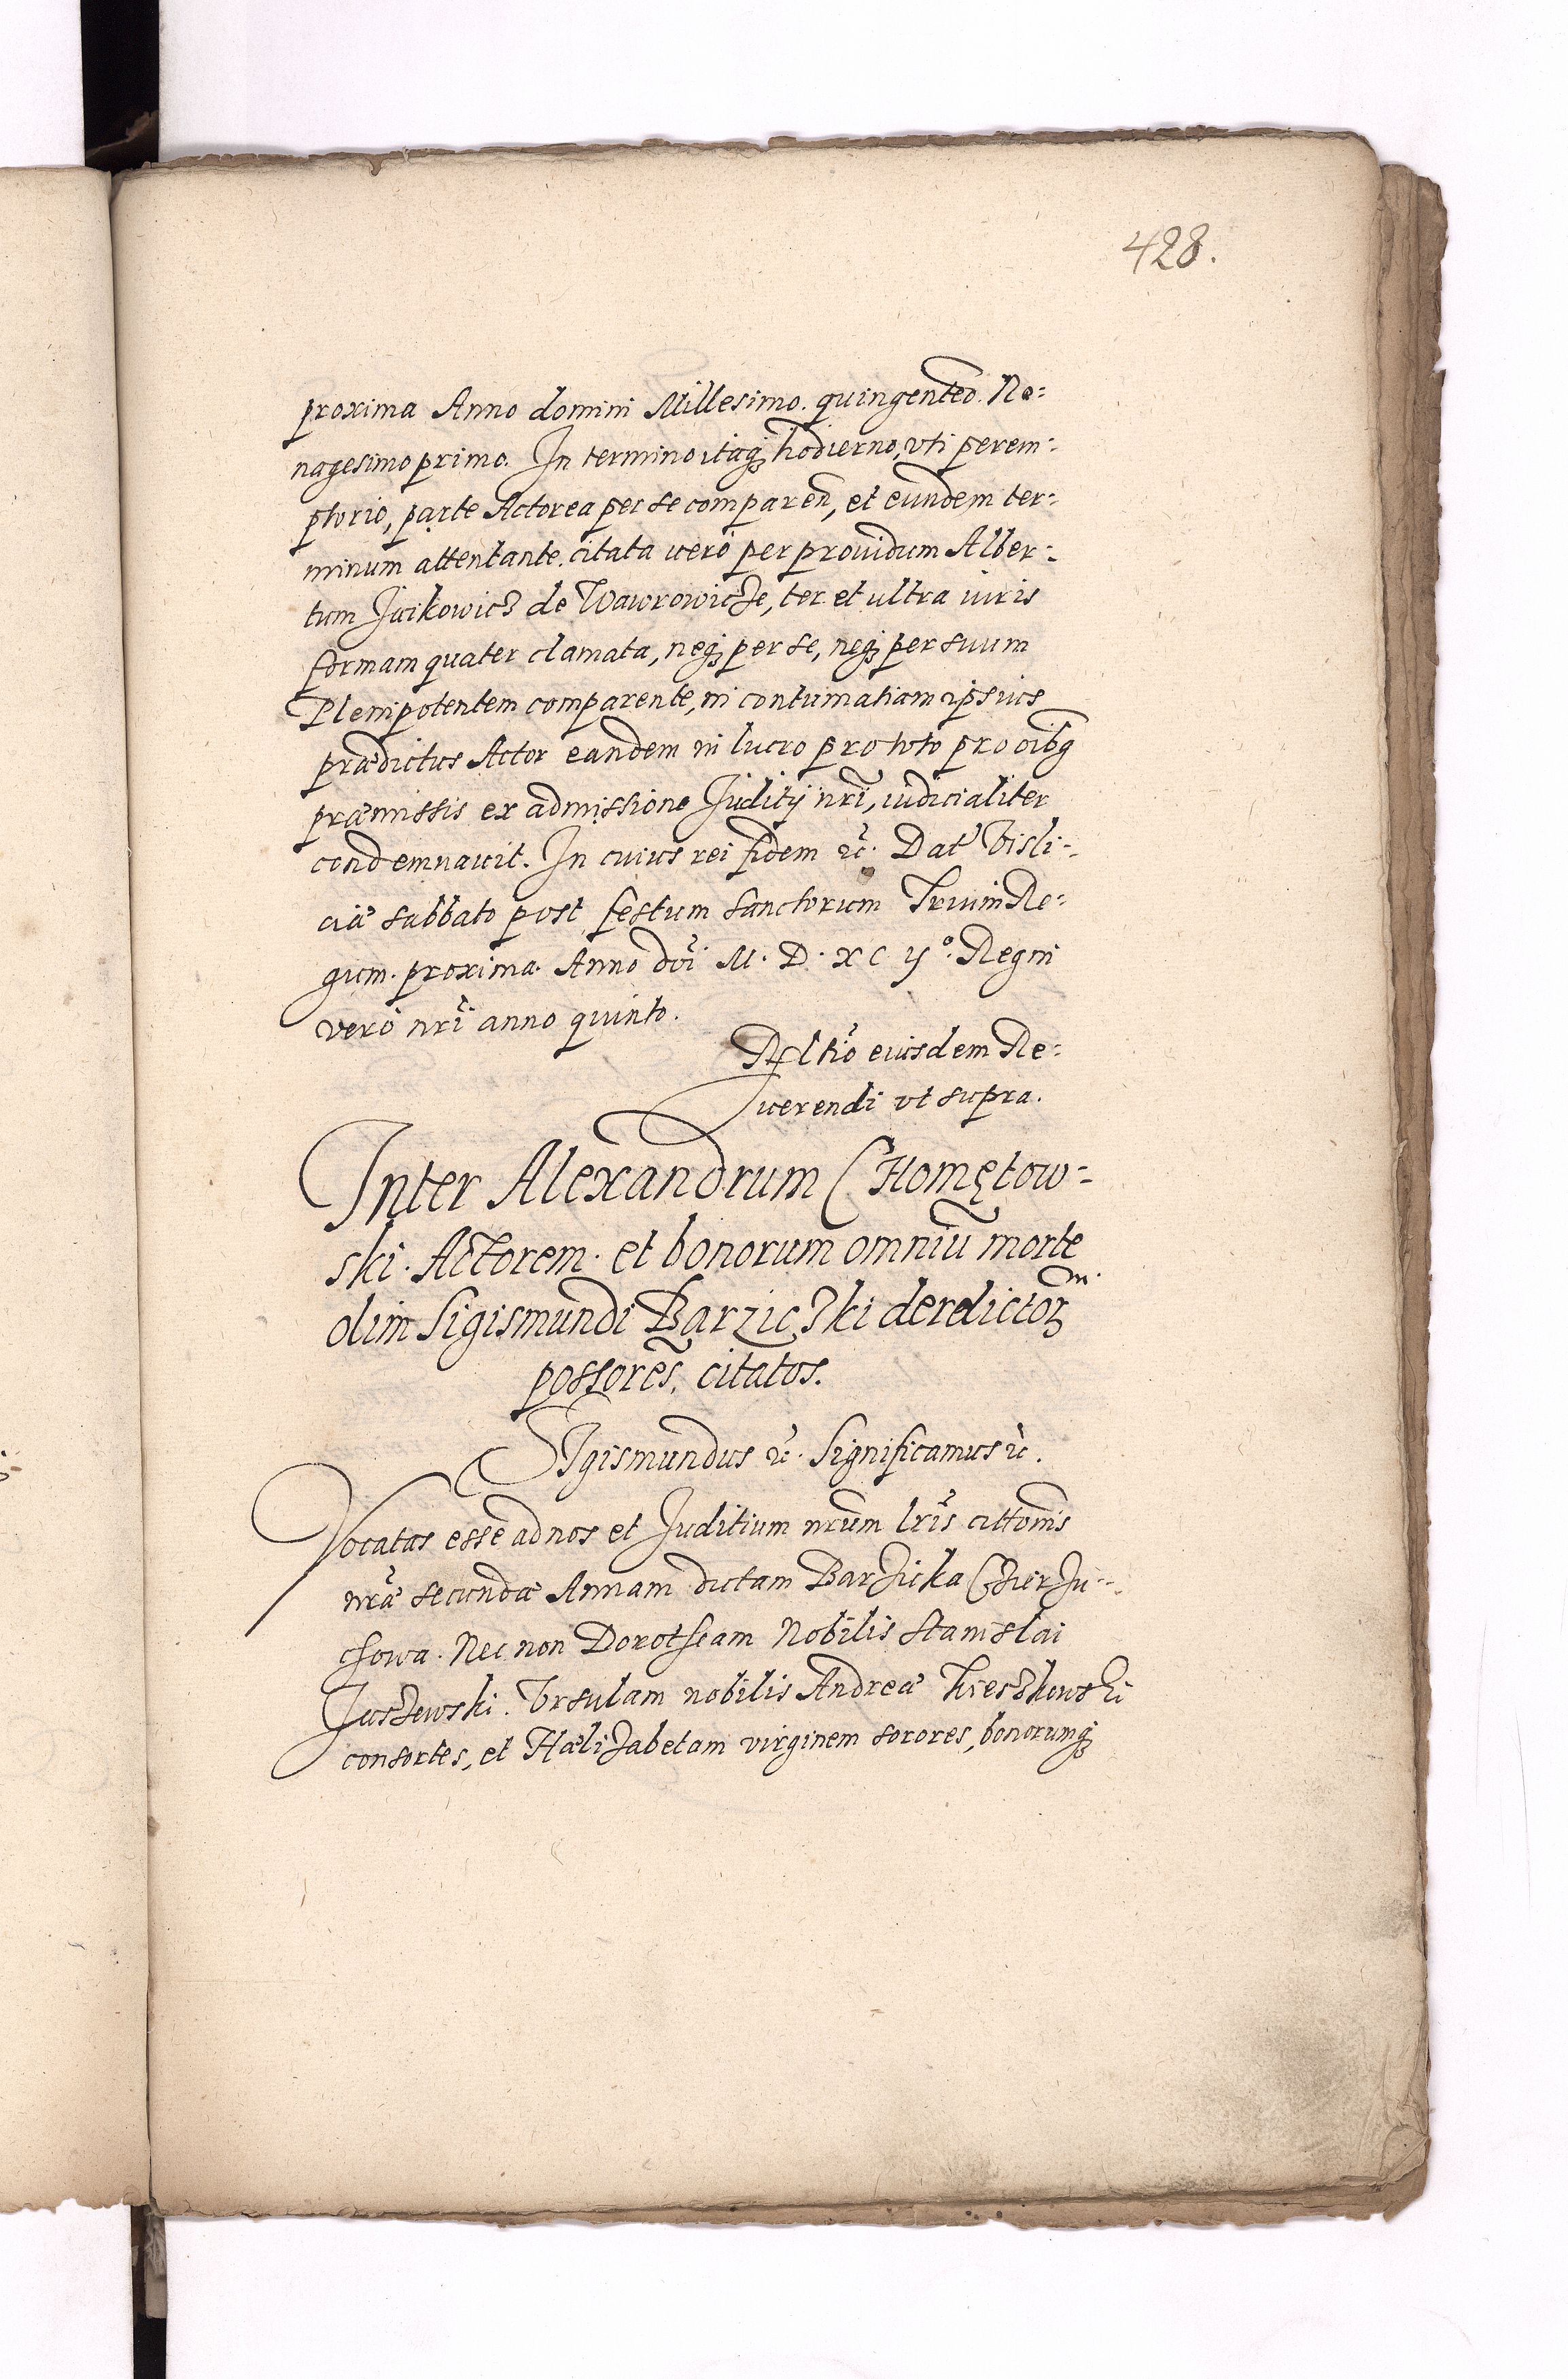 428.
proxima Anno domini Millesimo. quingenteo. No:
nagesimo primo. In termino itaqȝ hodierno, vti perem:
ptorio, parte Actorea per se comparen̄, et eundem ter:
minum attentante. citata vero per prouidum Alber:
tum Juikowicz de Wawrowicze, ter et ultra iuris
formam quater clamata, neqȝ per se, neqȝ per suum
Plenipotentem comparente, in contumatiam ipsius
prædictus Actor eandem in lucro pro toto pro oibq
præmissis ex admissione Juditij nr̃i, iudicialiter
condemnauit. In cuius rei fidem ꝛc̃. Dat' Visli-
ciæ sabbato post festum sanctorum Trium Re:
gum. proxima. Anno dñi M. D. XC ijº. Regni
vero nr̃i anno quinto.
Rltio eiusdem Re:
uerendi vt supra.
Inter Alexandrum CHomętow-
ski. Actorem. et bonorum omniũ morte
olim Sigismundi Barziczki derelictoꝝ
possores̃, citatos.
SIgismundus ꝛc̃. Significamus ꝛc̃.
Vocatas esse ad nos et Juditium nrum lr̃is cittonis
nr̃æ secundæ Annam dictam Barzicka Czierzu-
chowa. Nec non Dorotheam Nobilis Stanislai
Juszewski. Vrsulam nobilis Andreæ Kieszkowski
consortes, et Hælizabetam virginem sorores, bonorumqȝ